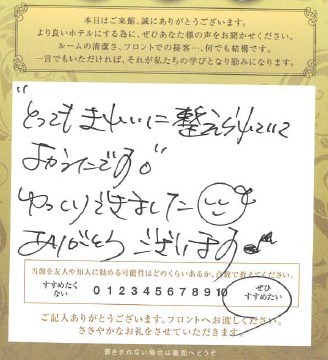 本日はご来館、誠にありがとうございます。
より良いホテルにする為に、ぜひあなた様の声をお聞かせください。
ルームの清潔さ、フロントでの接客…、何でも結構です。
一言でもいただければ、それが私たちの学びとなり励みになります。
"とってもきれいに整えられていて
よかったです。"
ゆっくりできました
ありがとうございます♪
当館を友人や知人に勧める可能性はどのくらいあるか、点数で教えてください。
すすめたくない 0 1 2 3 4 5 6 7 8 9 10 ぜひすすめたい
ご記入ありがとうございます。フロントへお渡しください。
ささやかなお礼をさせていただきます。
書ききれない場合は裏面へどうぞ